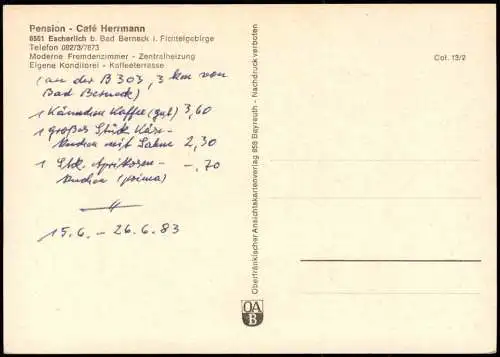 Pension - Café Herrmann
8581 Escherlich b. Bad Berneck i. Fichtelgebirge
Telefon 09273/7673
Moderne Fremdenzimmer - Zentralheizung
Eigene Konditorei - Kaffeeterrasse
(an der B 303, 3 km von
Bad Berneck)
1 Kännchen Kaffee (gut) 3,60
1 Großes Stück Käse-
kuchen mit Sahne 2,30
1 Stck. Aprikosen-
kuchen (prima) -.70
15.6. - 26.6.83
Oberfränkischer Ansichtskartenverlag 858 Bayreuth - Nachdruck verboten
Col. 13/2
OA
B